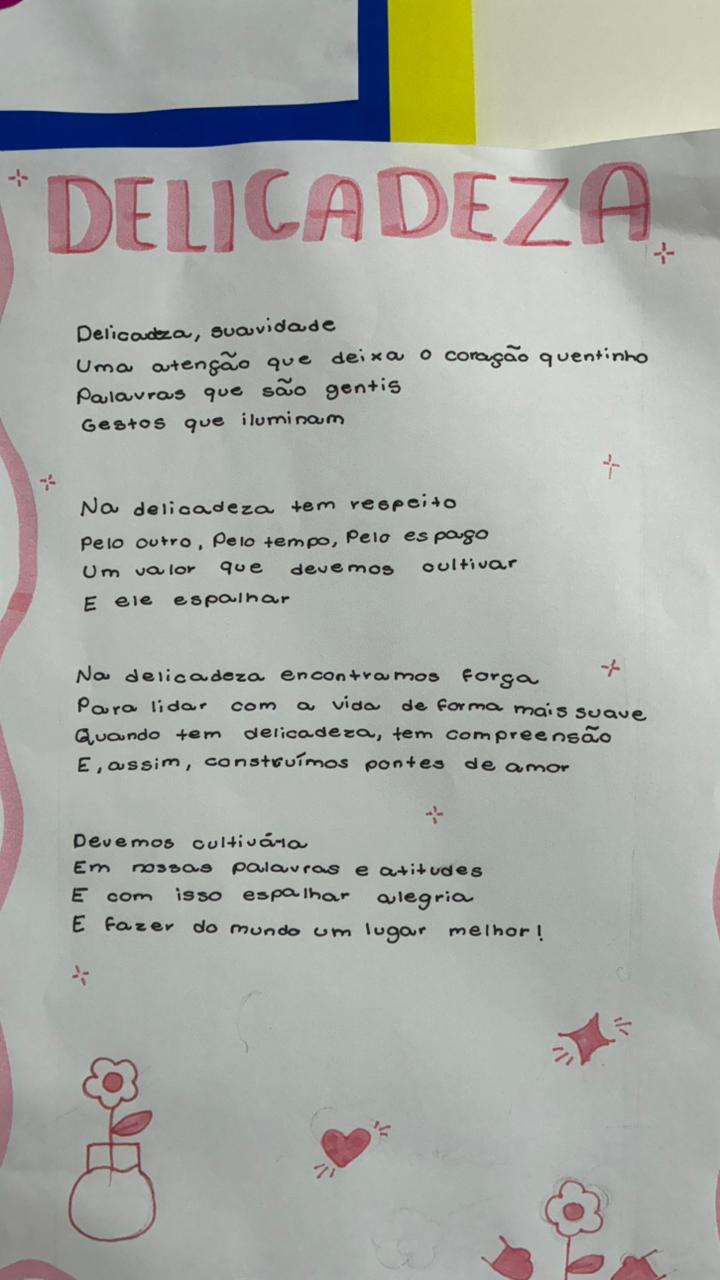 DELICADEZA
Delicadeza, suavidade
Uma atenção que deixa o coração quentinho
Palavras que são gentis
Gestos que iluminam
Na delicadeza tem respeito
Pelo outro, Pelo tempo, Pelo espaço
Um valor que devemos cultivar
E ele espalhar
Na delicadeza encontramos força
Para lidar com a vida de forma mais suave
Quando tem delicadeza, tem compreensão
E, assim, construímos pontes de amor
Devemos cultivála
Em nossas palavras e atitudes
E com isso espalhar alegria
E fazer do mundo um lugar melhor!